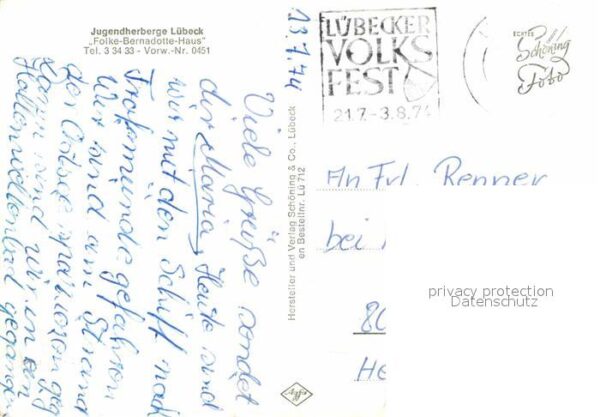 Jugendherberge Lübeck
„Folke-Bernadotte-Haus"
Tel. 3 34 33 - Vorw.-Nr. 0451
13.7.74
Viele Grüße sendet
dir Maria, Heute sind
wir mit den Schiff nach
Trafemünde gefahren
Wir sind am Strand
der Ostsee spazieren geg
Dann sind wir in ein
Hallenwellenbad gegangen
Hersteller und Verlag Schöning & Co., Lübeck
en Bestellnr. Lü 712
Agfa
LÜBECKER
VOLKS
FEST
21.7.-3.8.74
ECHTES
Schöning
Foto
An Frl. Renner
bei
privacy protection
Datenschutz
80
He